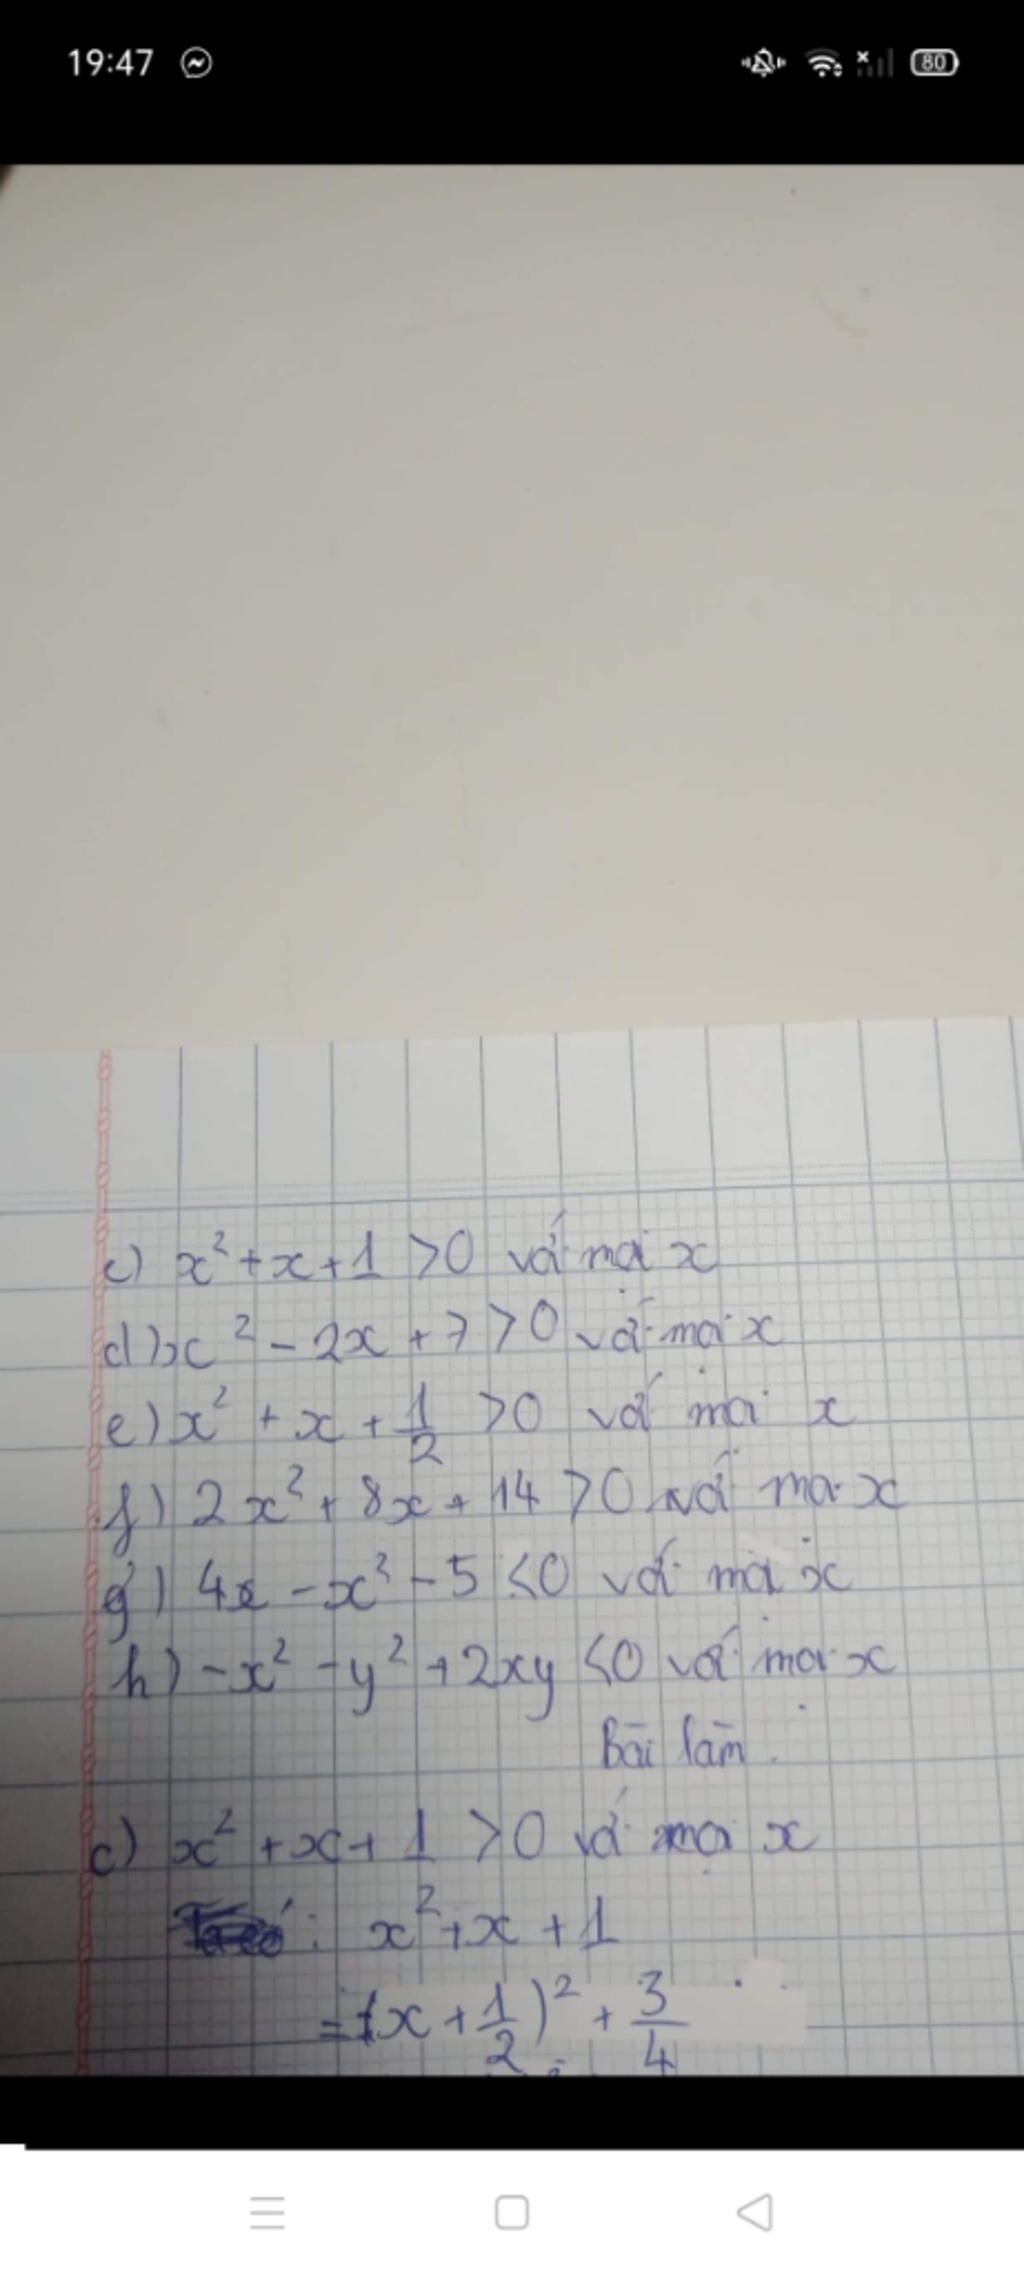 19:47
80
c) x² + x + 1 > 0 với mọi x
d) x² - 2x + 7 > 0 với mọi x
e) x² + x + 1/2 > 0 với mọi x
f) 2x² + 8x + 14 > 0 với mọi x
g) 4x - x² - 5 < 0 với mọi x
h) -x² - y² + 2xy ≤ 0 với mọi x
Bài làm.
c) x² + x + 1 > 0 với mọi x
: x² + x + 1
= (x + 1/2)² + 3/4